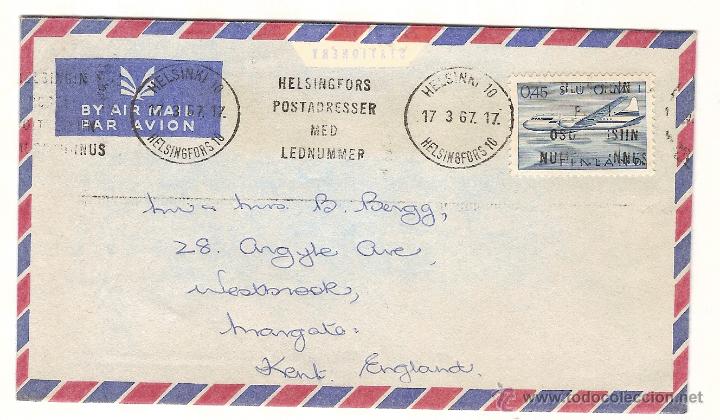 STATIONERY
HELSINKI 10
17. 3 67. 17.
HELSINGFORS 10
BY AIR MAIL
PAR AVION
HELSINGFORS
POSTADRESSER
MED
LEDNUMMER
HELSINKI 10
17 3 67. 17.
HELSINGFORS 10
0,45
FINLAND
Mr & Mrs. B. Bergg,
28. Argyle Ave,
Westbrook,
Margate.
Kent. England.
www.todocoleccion.net